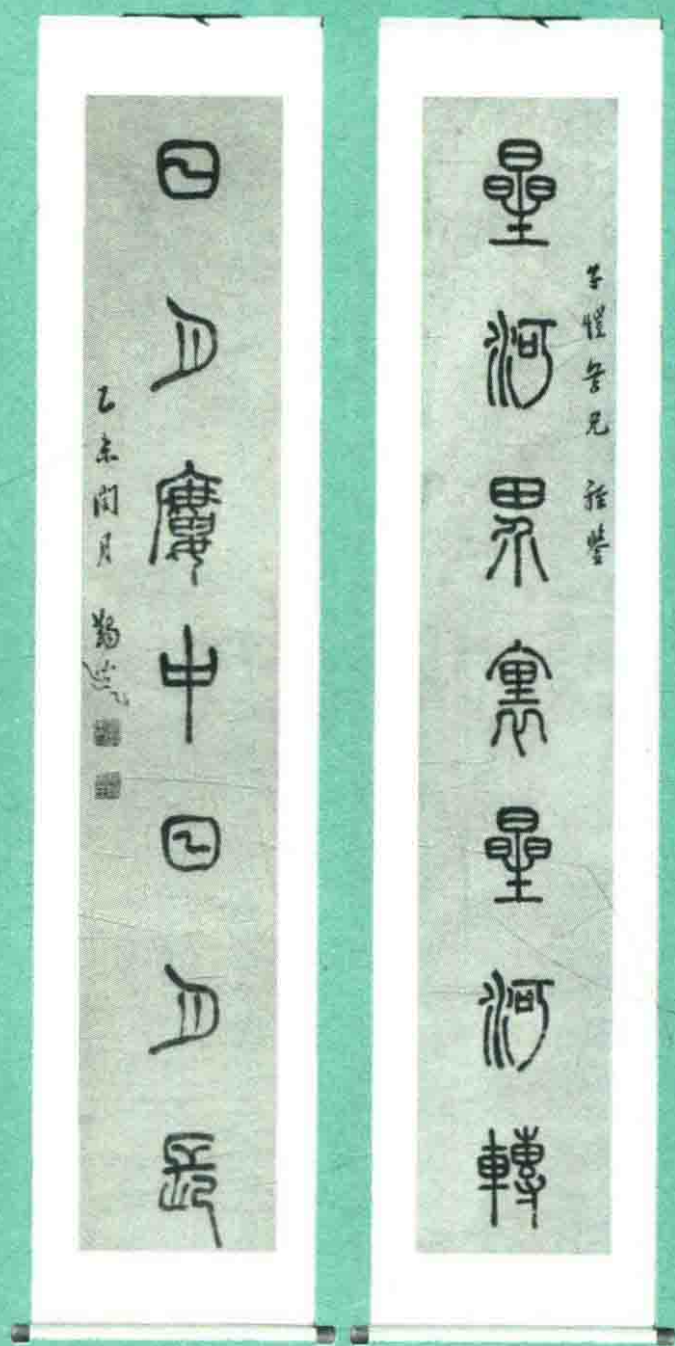 星河界裏星河轉
子愷 兄 雅鑒
日月廔中日月長
乙未閏月 蠲